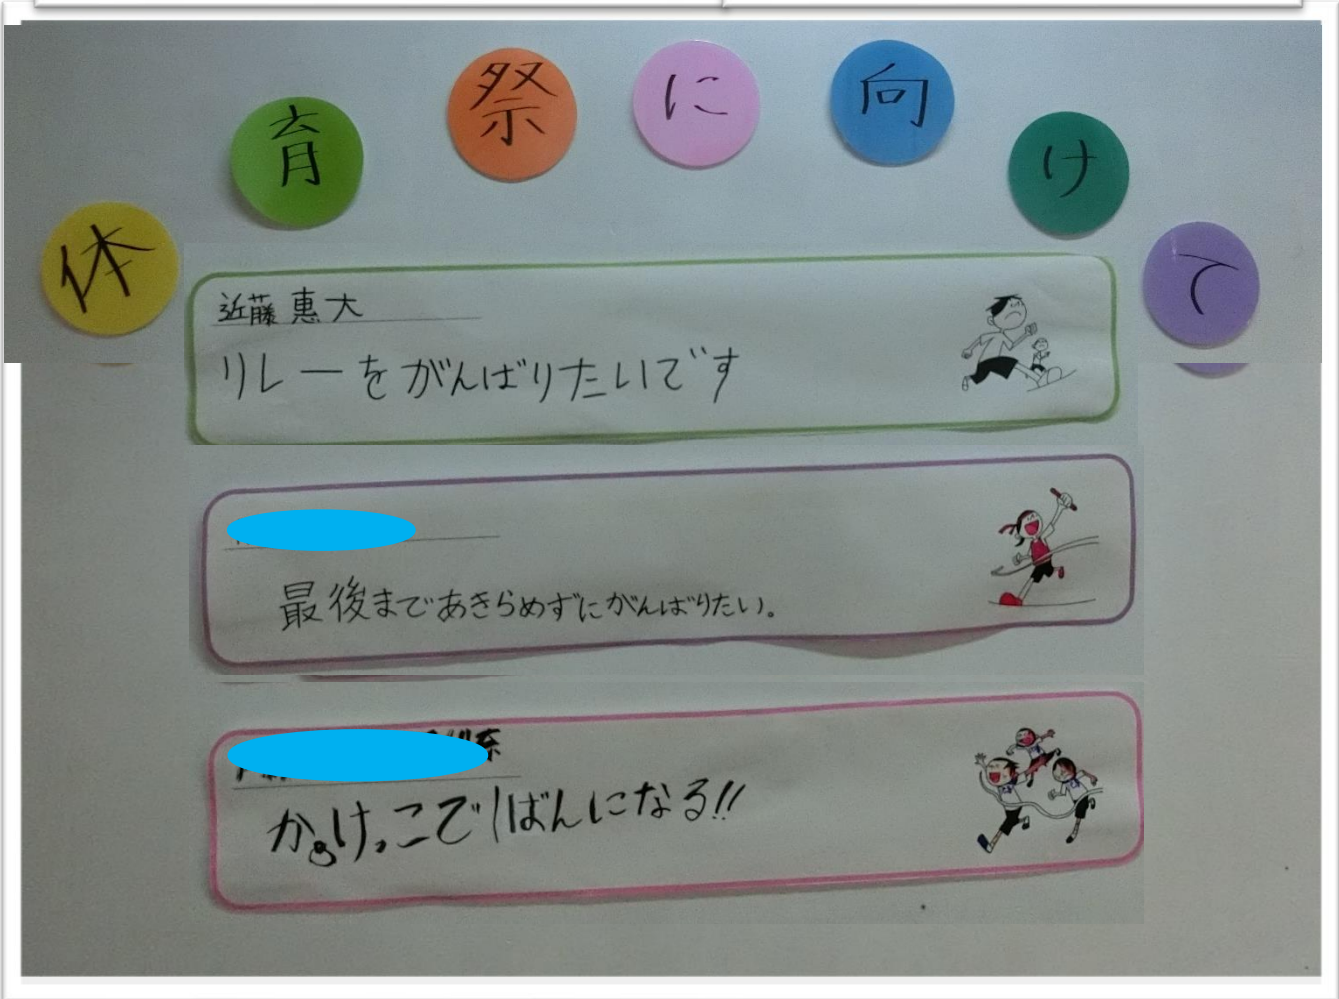 体育祭に向けて
近藤 惠大
リレーをがんばりたいです
最後まであきらめずにがんばりたい。
かけっこで1ばんになる!!